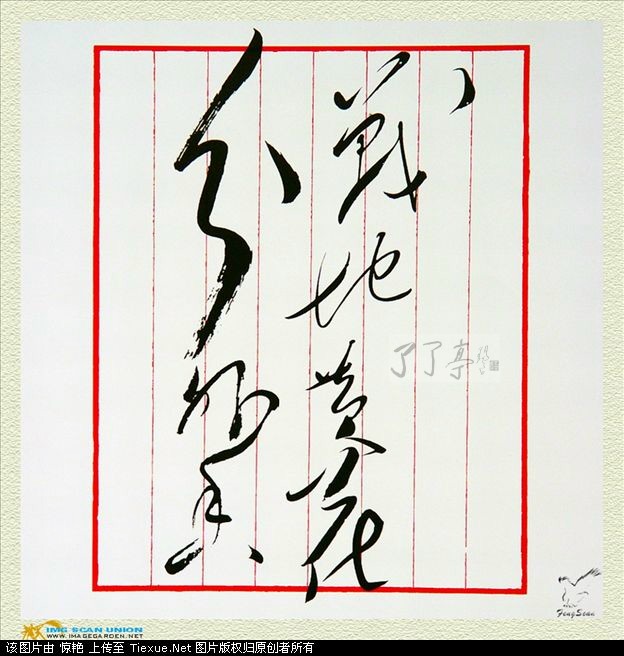 戰地黄花
分外香
了了亭
FengScan
IMG SCAN UNION
WWW.IMAGEGARDEN.NET
该图片由 惊艳 上传至 Tiexue.Net 图片版权归原创者所有